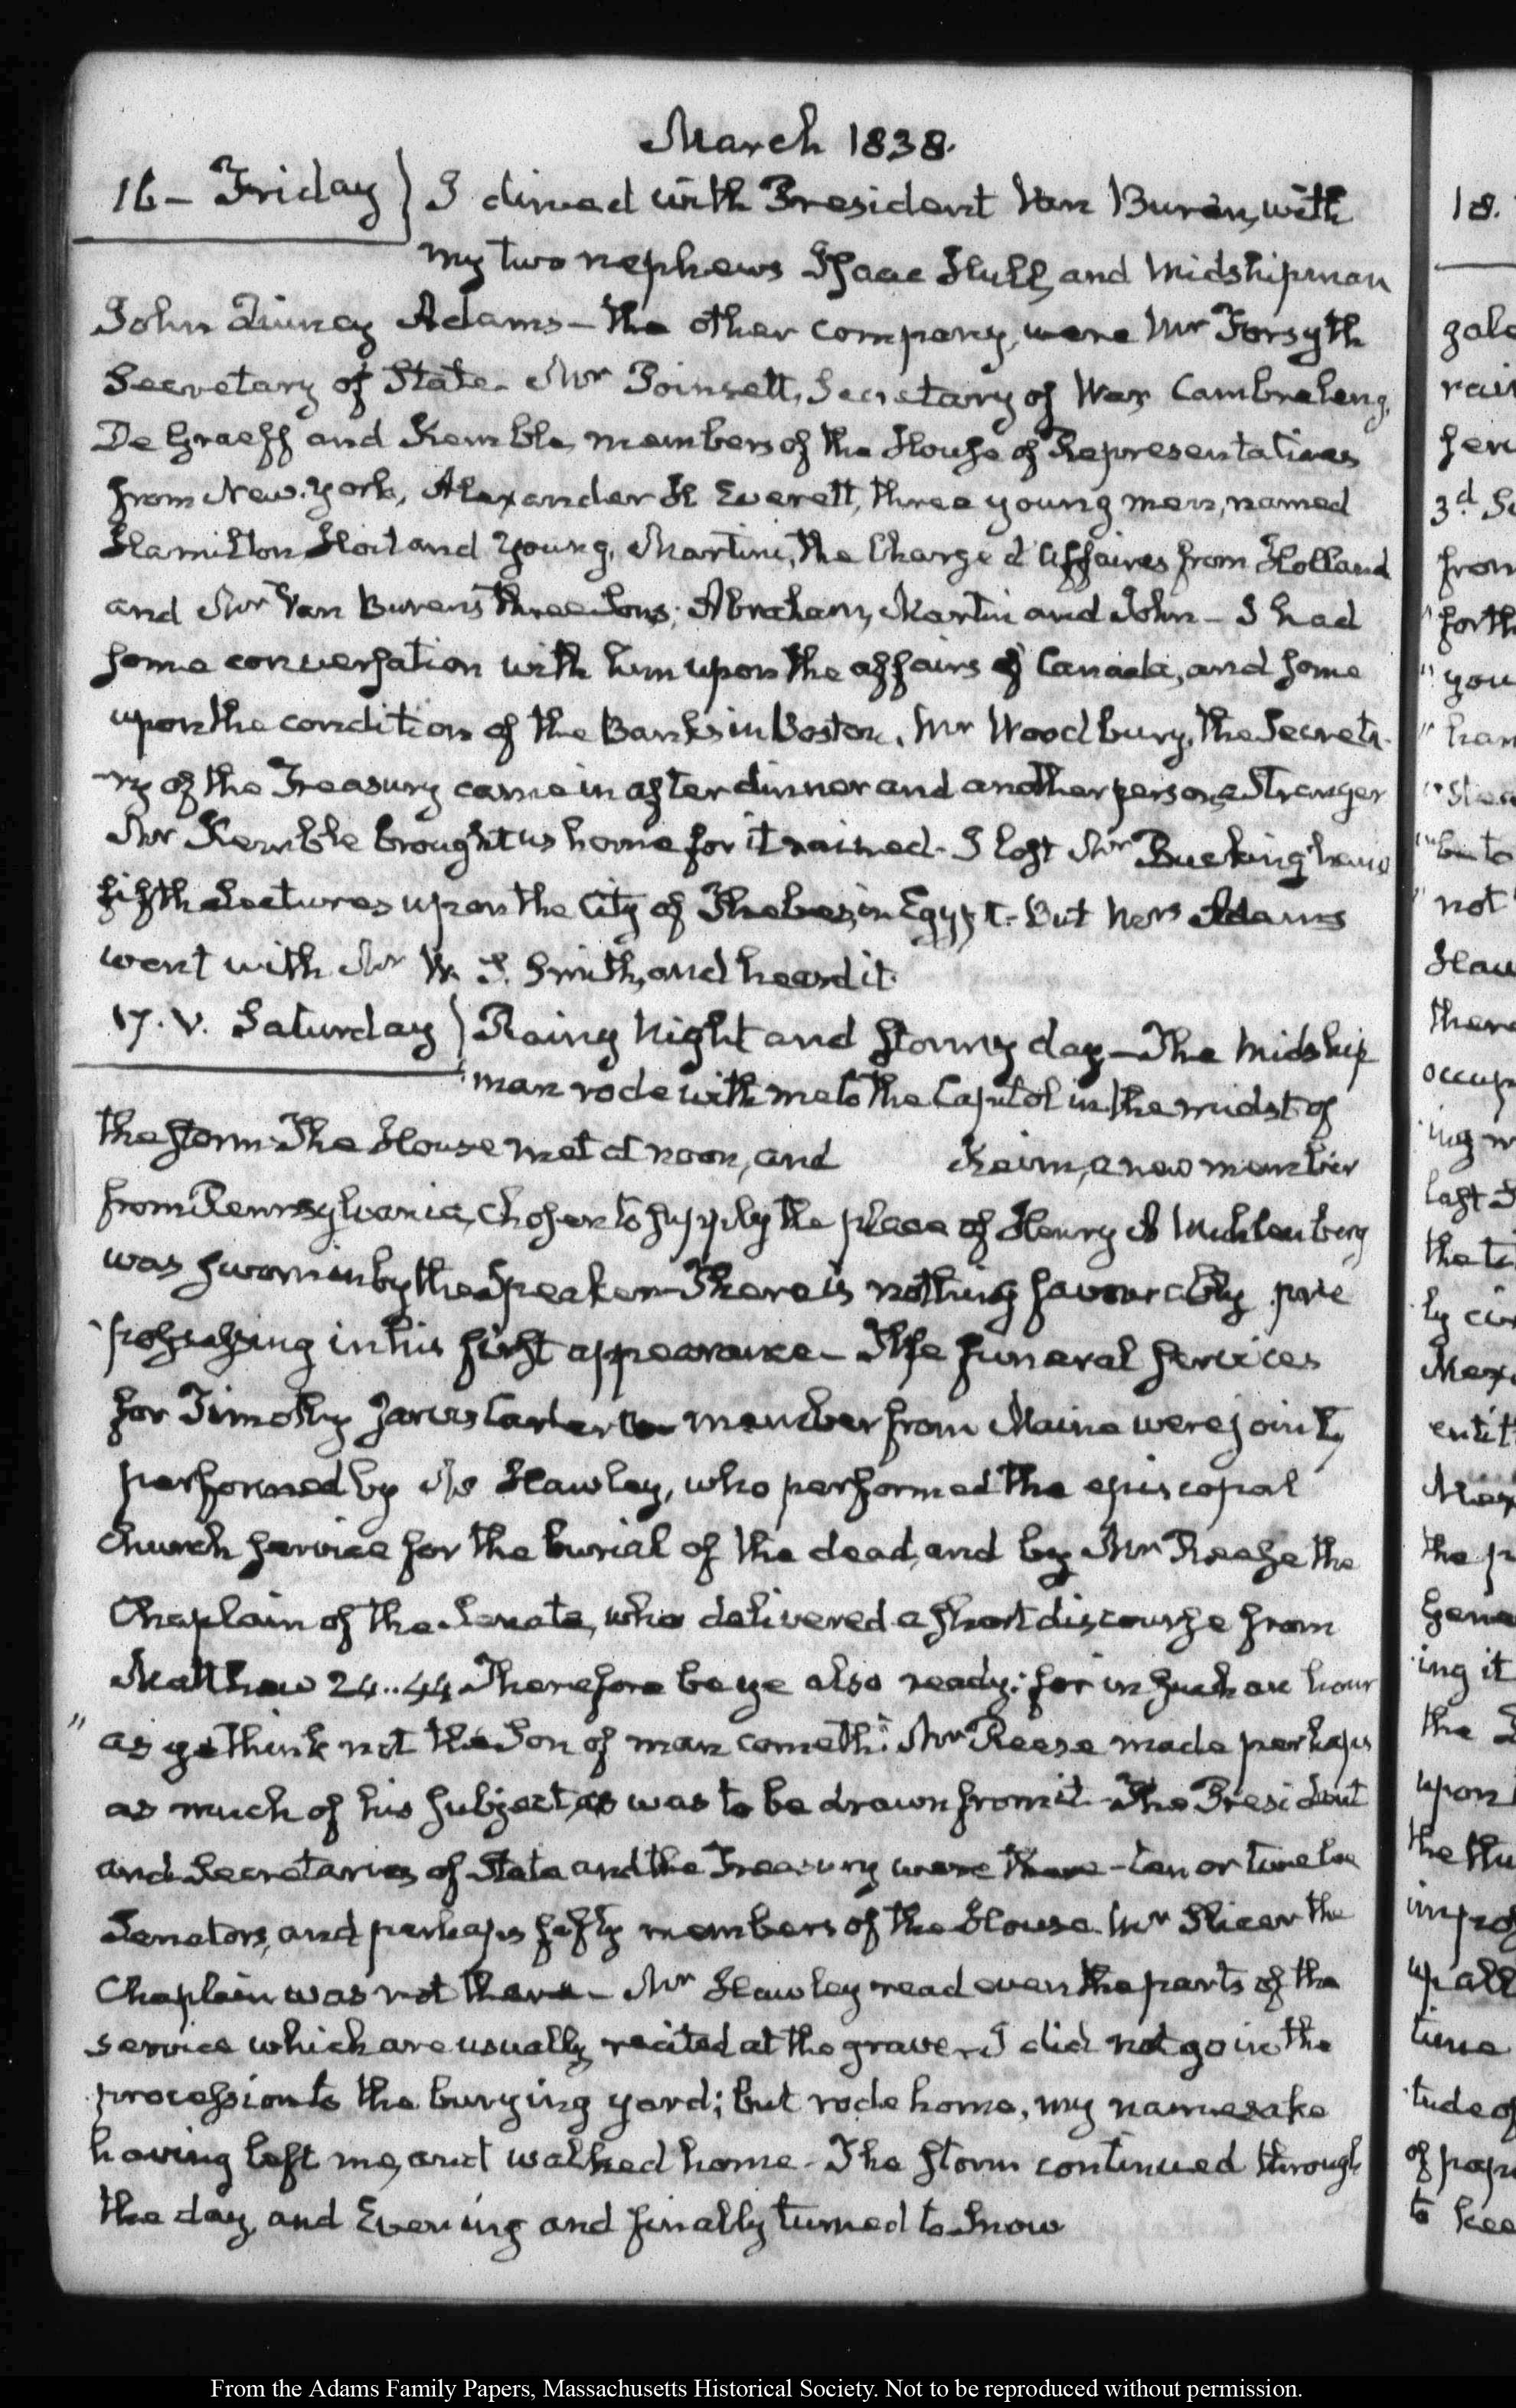 March 1838.
16 – Friday } I dined with President Van Buren, with
my two nephews Isaac Hull, and Midshipman
John Quincy Adams – the other company, were Mr Forsyth
Secretary of State. Mr Poinsett, Secretary of War Cambreleng,
De Graeff and Kemble, members of the House of Representatives
from New-York, Alexander H Everett, three young men, named
Hamilton, Hoit and Young, Martini, the Charge d'Affaires from Holland
and Mr Van Buren's three Sons; Abraham, Martin and John – I had
some conversation with him upon the affairs of Canada, and some
upon the condition of the Banks in Boston. Mr Woodbury, the Secreta-
-ry of the Treasury came in after dinner and another person, a Stranger
Mr Kemble brought us home for it rained. I lost Mr Buckingham's
fifth Lecture upon the City of Thebes, in Egypt. But Mrs Adams
went with Mr W. S. Smith, and heard it.
17. V. Saturday } Rainy Night and stormy day – The Midship
man rode with me to the Capitol in the midst of
the storm. The House met at noon, and Keim, a new member
from Pennsylvania, chosen to supply the place of Henry A Muhlenberg
was sworn in by the Speaker – There is nothing favourably pre
possessing in his first appearance – The funeral services
for Timothy Jarvis Carter a member from Maine were jointly
performed by Mr Hawley, who performed the episcopal
Church service for the burial of the dead, and by Mr Reese the
Chaplain of the Senate, who delivered a short discourse from
Matthew 24..44 Therefore be ye also ready: for in such an hour
" as ye think not the Son of man cometh." Mr Reese made perhaps
as much of his subject, as was to be drawn from it – The President
and Secretaries of State and the Treasury were there – ten or twelve
Senators, and perhaps fifty members of the House. Mr Slicer the
Chaplain was not there – Mr Hawley read even the parts of the
service which are usually recited at the grave. I did not go in the
procession to the burying yard; but rode home, my namesake
having left me, and walked home – The storm continued through
the day, and Evening and finally turned to Snow
18.
gale
rain
3d
from
forth
" you
" han
not
there
occup
ing
last
the
upon
time
tude of
of pape
to kee
From the Adams Family Papers, Massachusetts Historical Society. Not to be reproduced without permission.